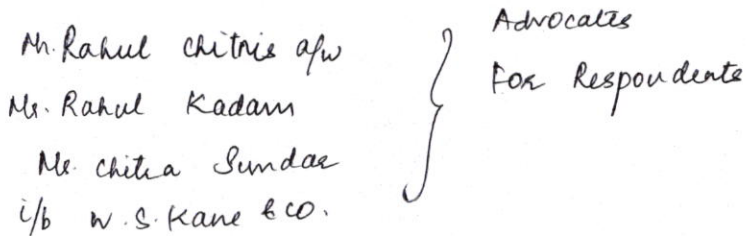 Mr. Rahul Chitnis a/w
Mr. Rahul Kadam
Ms. Chitra Sundar
i/b W.S. Kane & CO.
Advocates
For Respondents